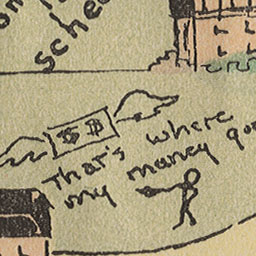 on
sche
$ $
That's where
my money goe